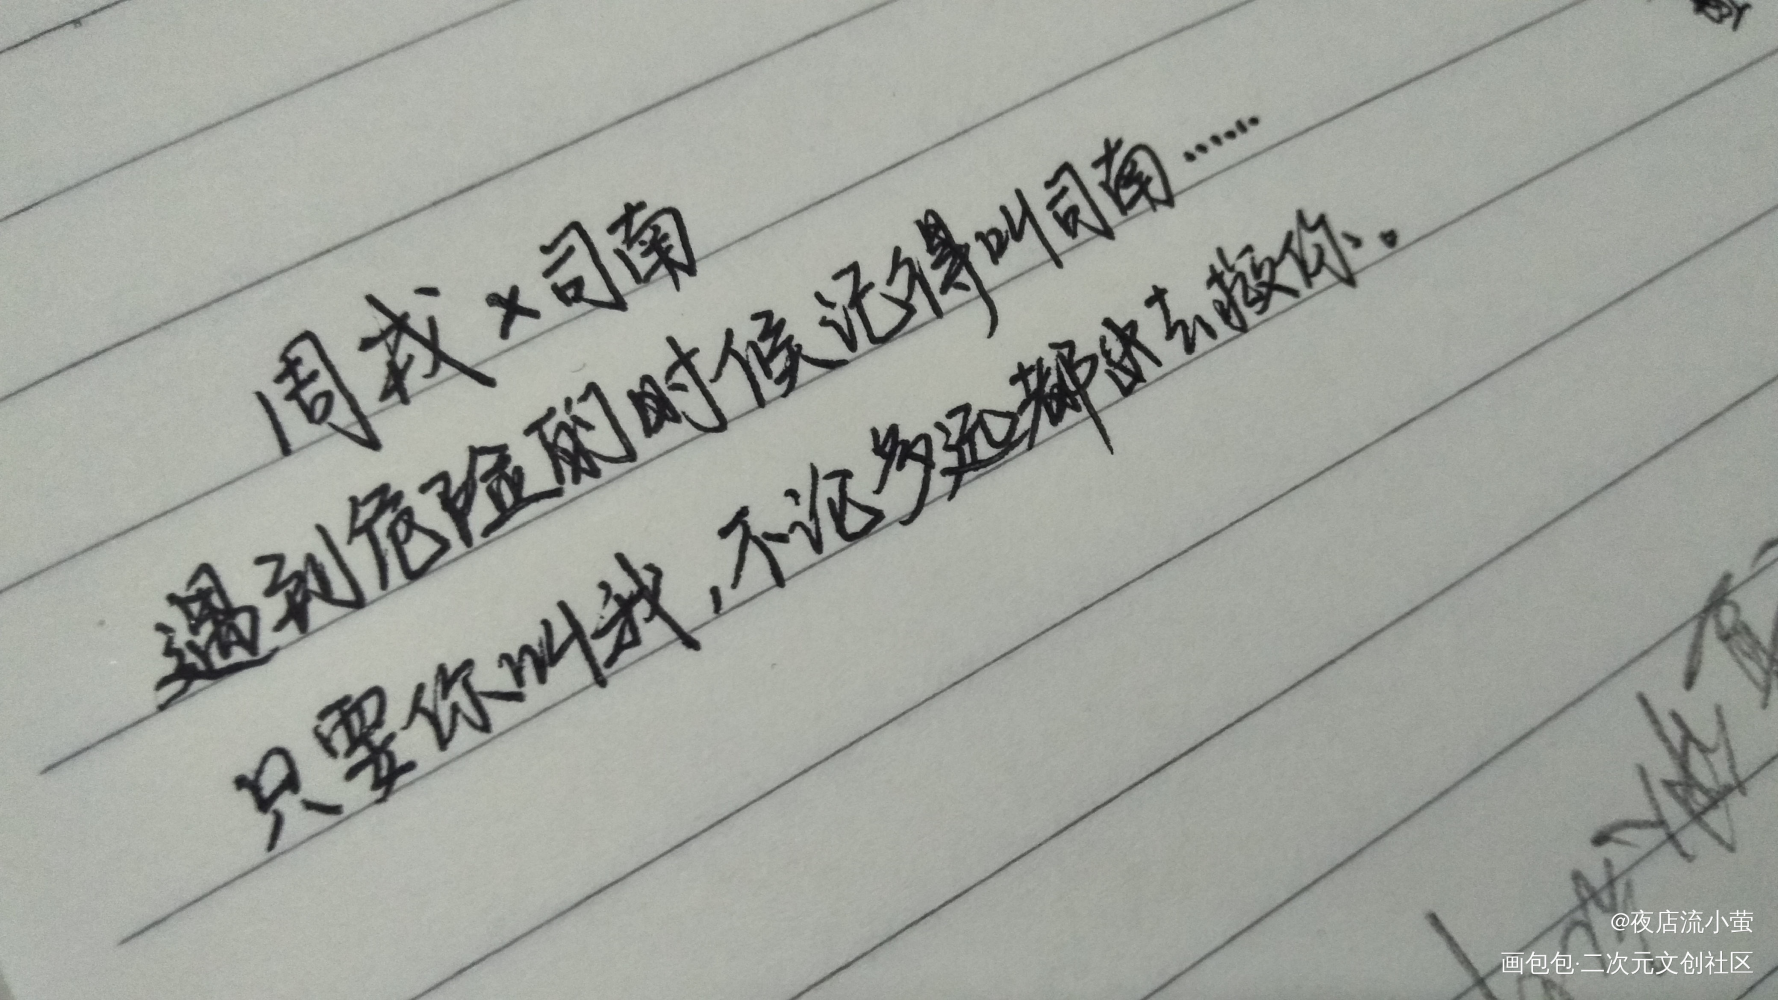 周戎×司南
遇到危险的时候记得叫司南……
只要你叫我，不论多远都会去救你。
@夜店流小萤
画包包·二次元文创社区